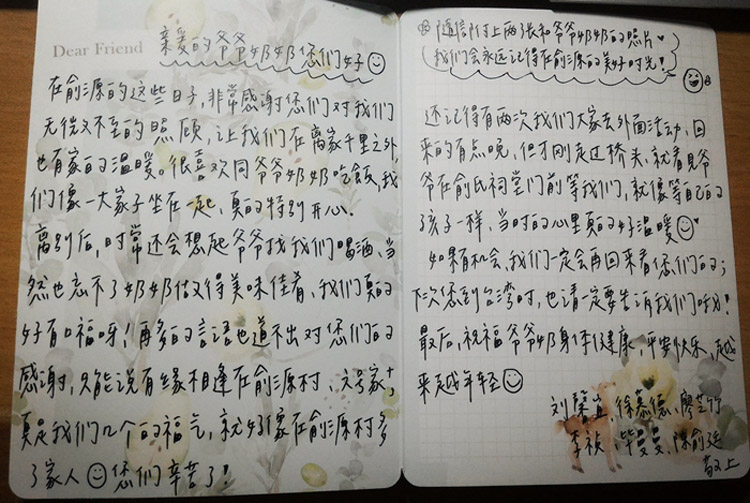 Dear Friend
亲爱的爷爷奶奶您们好
在俞源的这些日子,非常感谢您们对我们
无微不至的照顾,让我们在离家千里之外,
也有家的温暖。很喜欢同爷爷奶奶吃飯,我
们像一大家子坐在一起,真的特别开心.
离别后,时常还会想起爷爷找我们喝酒,当
然也忘不了奶奶做得美味佳肴,我们真的
好有口福呀!再多的言语也道不出对您们的
感谢,只能说有缘相逢在俞源村、六号家,
真是我们几个的福气,就好像在俞源村多
了家人 您们辛苦了!
随信附上两张和爷爷奶奶的照片
我们会永远记得在俞源的美好时光!
还记得有两次我们大家去外面活动,回
来的有点晚,但才刚走过桥头,就看見爷
爷在俞氏祠堂门前等我们,就像等自己的
孩子一样,当时的心里真的好温暖
如果有机会,我们一定会再回来看您们的;
下次您到台湾时,也请一定要告诉我们哦!
最后,祝福爷爷奶身体健康,平安快乐,越
来越年轻
刘馨宜、徐慕德、廖芷竹
李祯、毕曼曼、陈俞廷
敬上